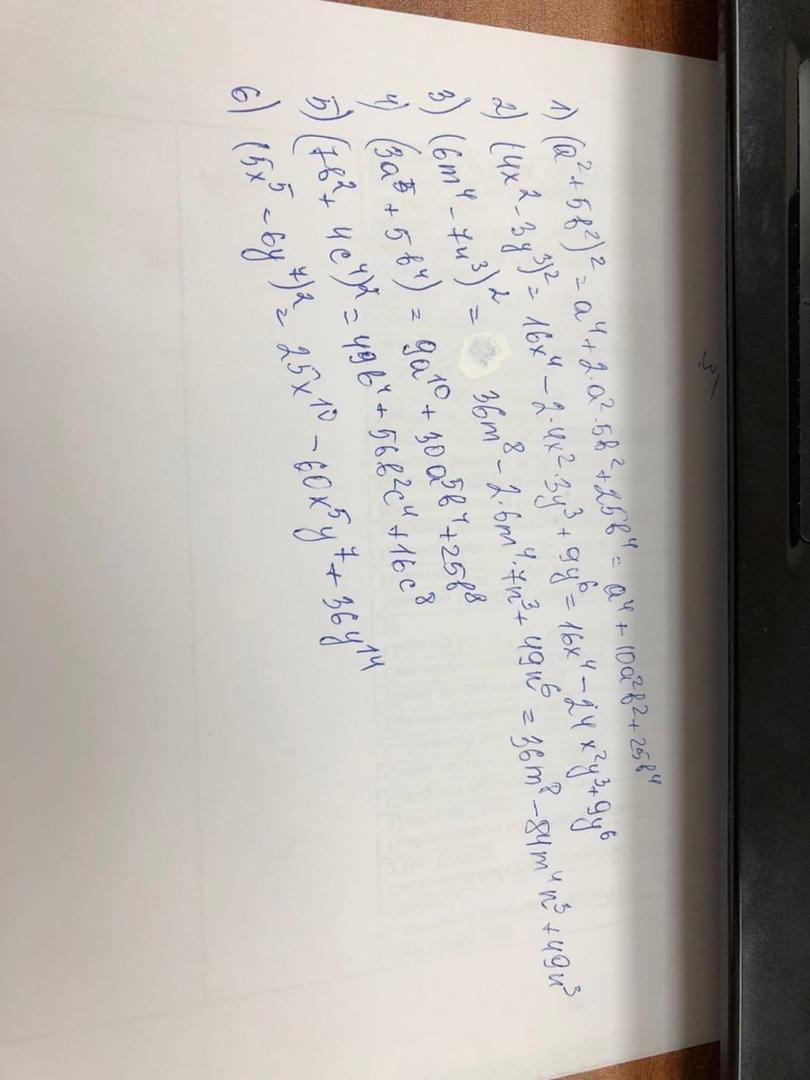 1) (a² + 5b²)² = a⁴ + 2·a²·5b² + 25b⁴ = a⁴ + 10a²b² + 25b⁴
2) (4x² - 3y³)² = 16x⁴ - 2·4x²·3y³ + 9y⁶ = 16x⁴ - 24x²y³ + 9y⁶
3) (6m⁴ - 7n³)² = 36m⁸ - 2·6m⁴·7n³ + 49n⁶ = 36m⁸ - 84m⁴n³ + 49n³
4) (3a⁵ + 5b⁴) = 9a¹⁰ + 30a⁵b⁴ + 25b⁸
5) (7b² + 4c⁴)² = 49b⁴ + 56b²c⁴ + 16c⁸
6) (5x⁵ - 6y⁷)² = 25x¹⁰ - 60x⁵y⁷ + 36y¹⁴